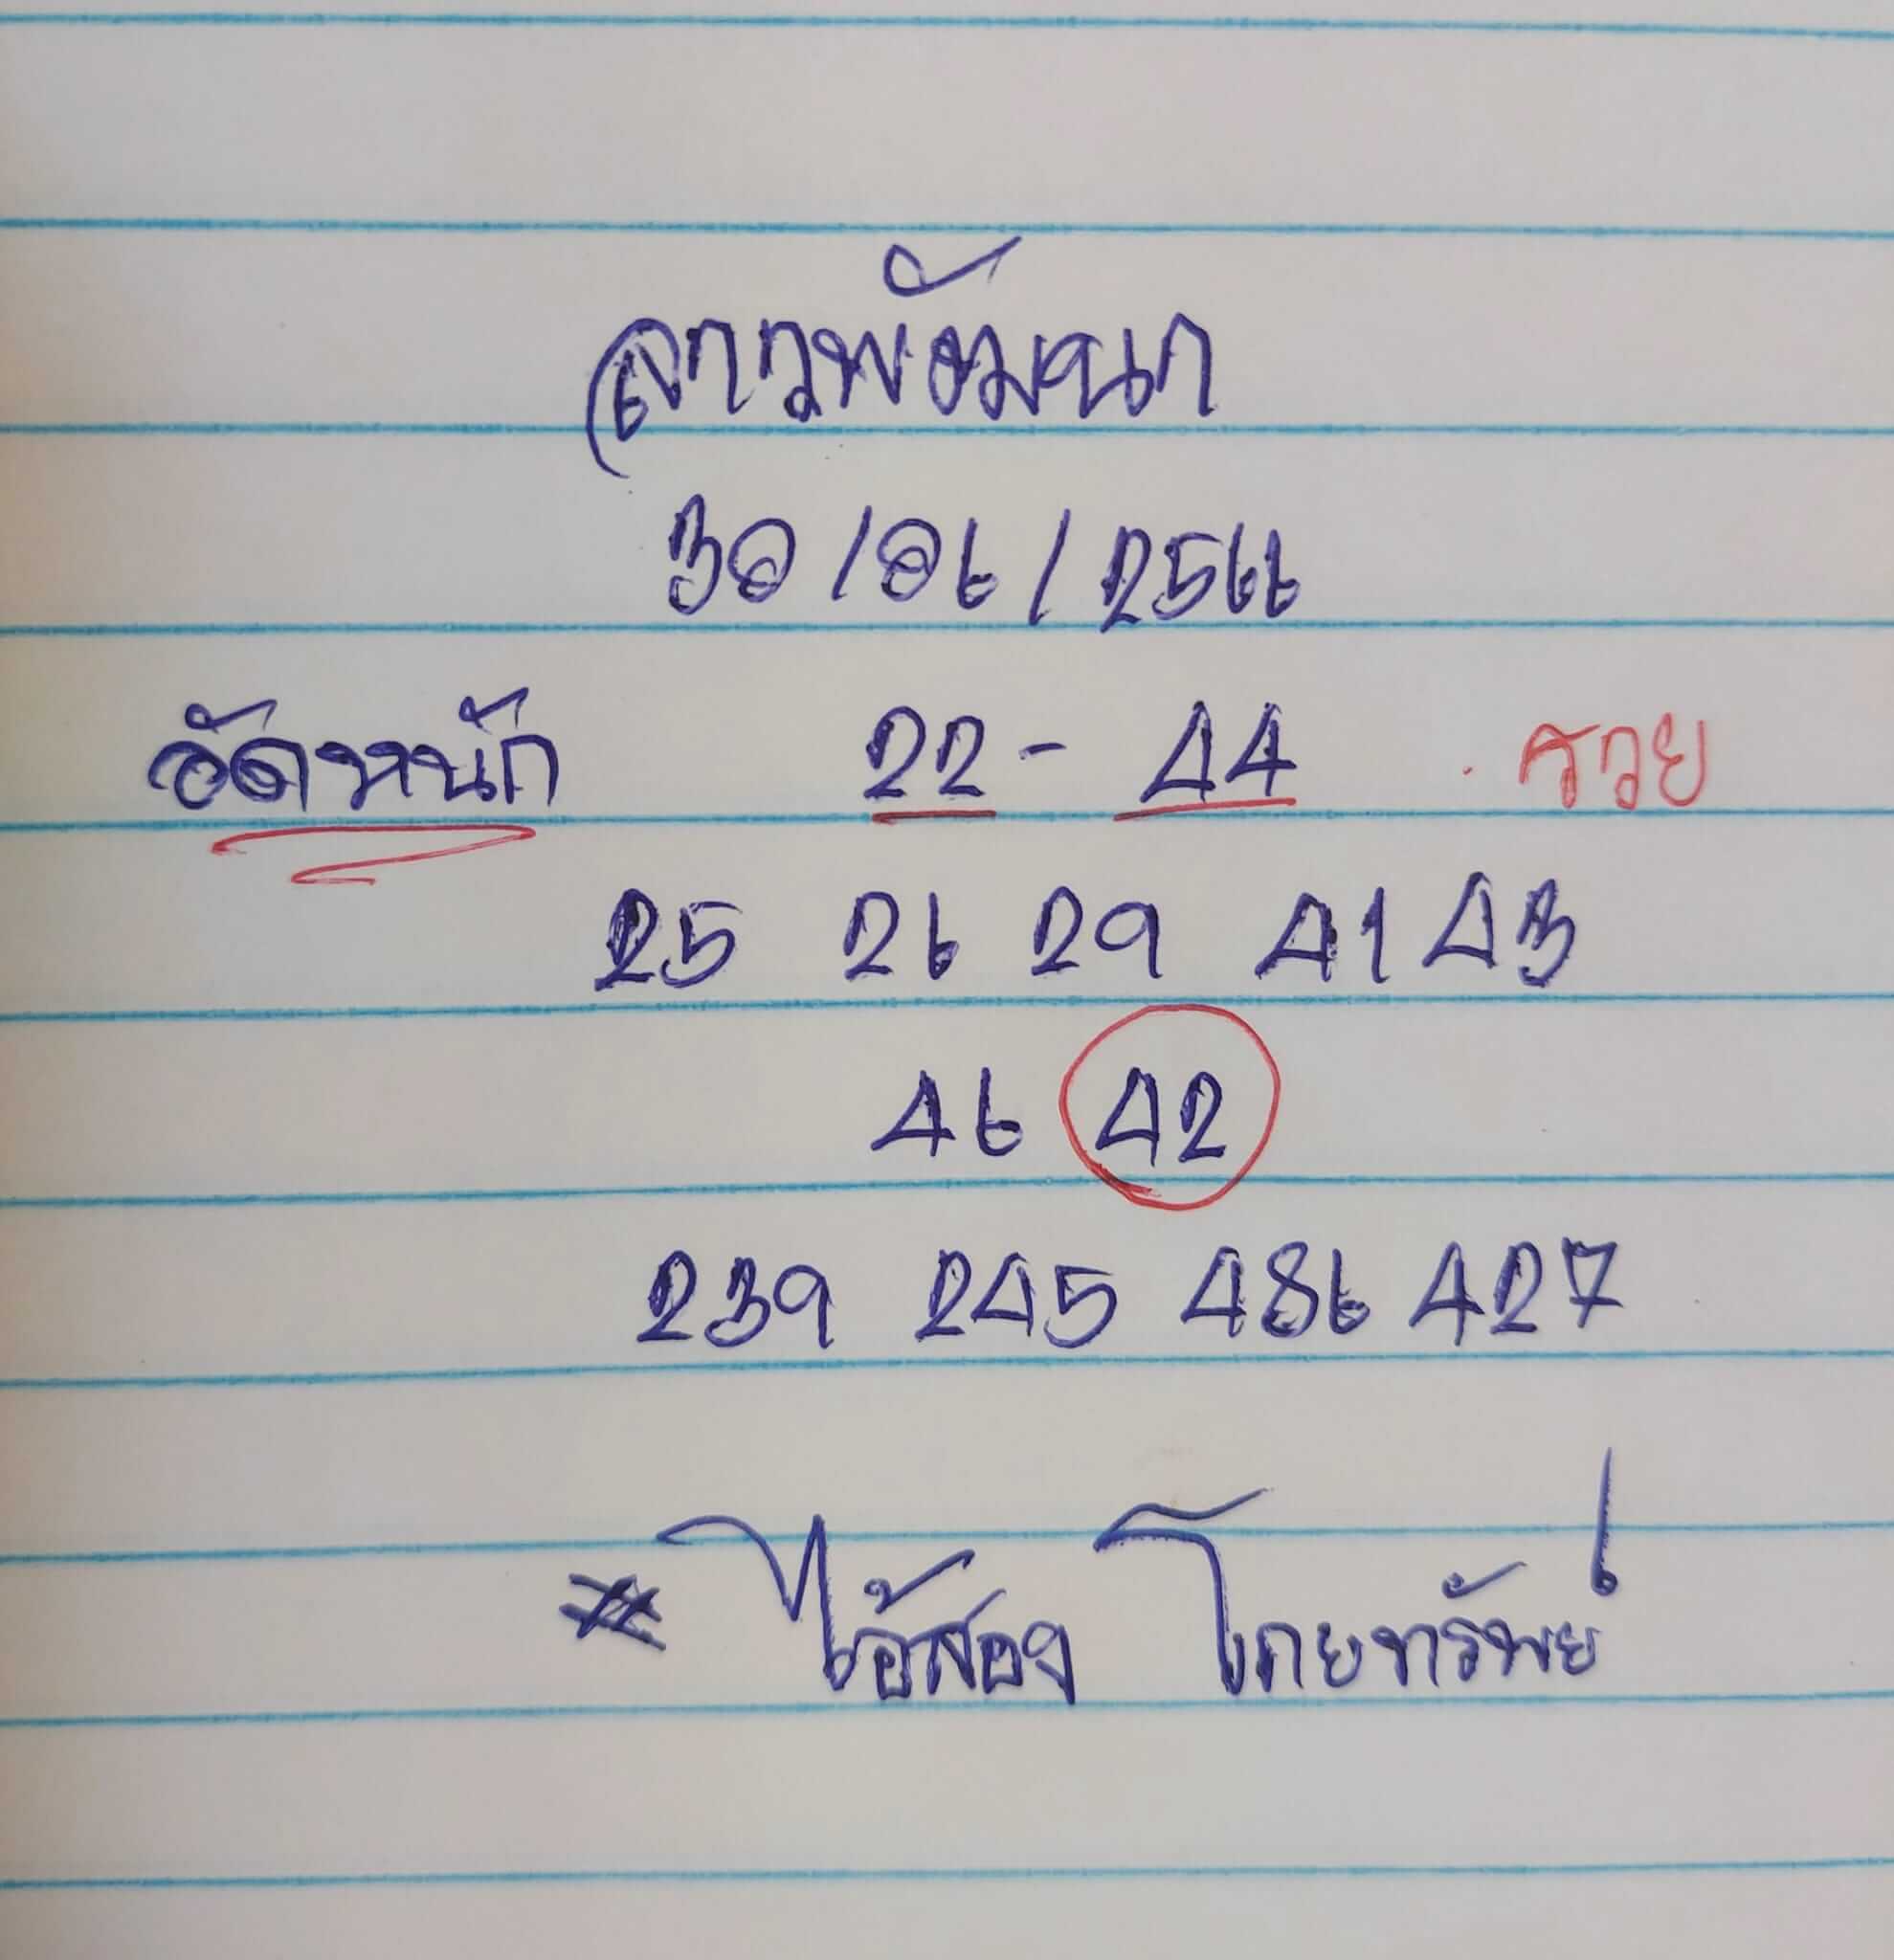 ลาวพัฒนา
30/06/2566
อัดหนัก 22 - 44 รวย
25 26 29 41 43
46 42
239 245 486 427
* ไอ้สอง โภยทรัพย์